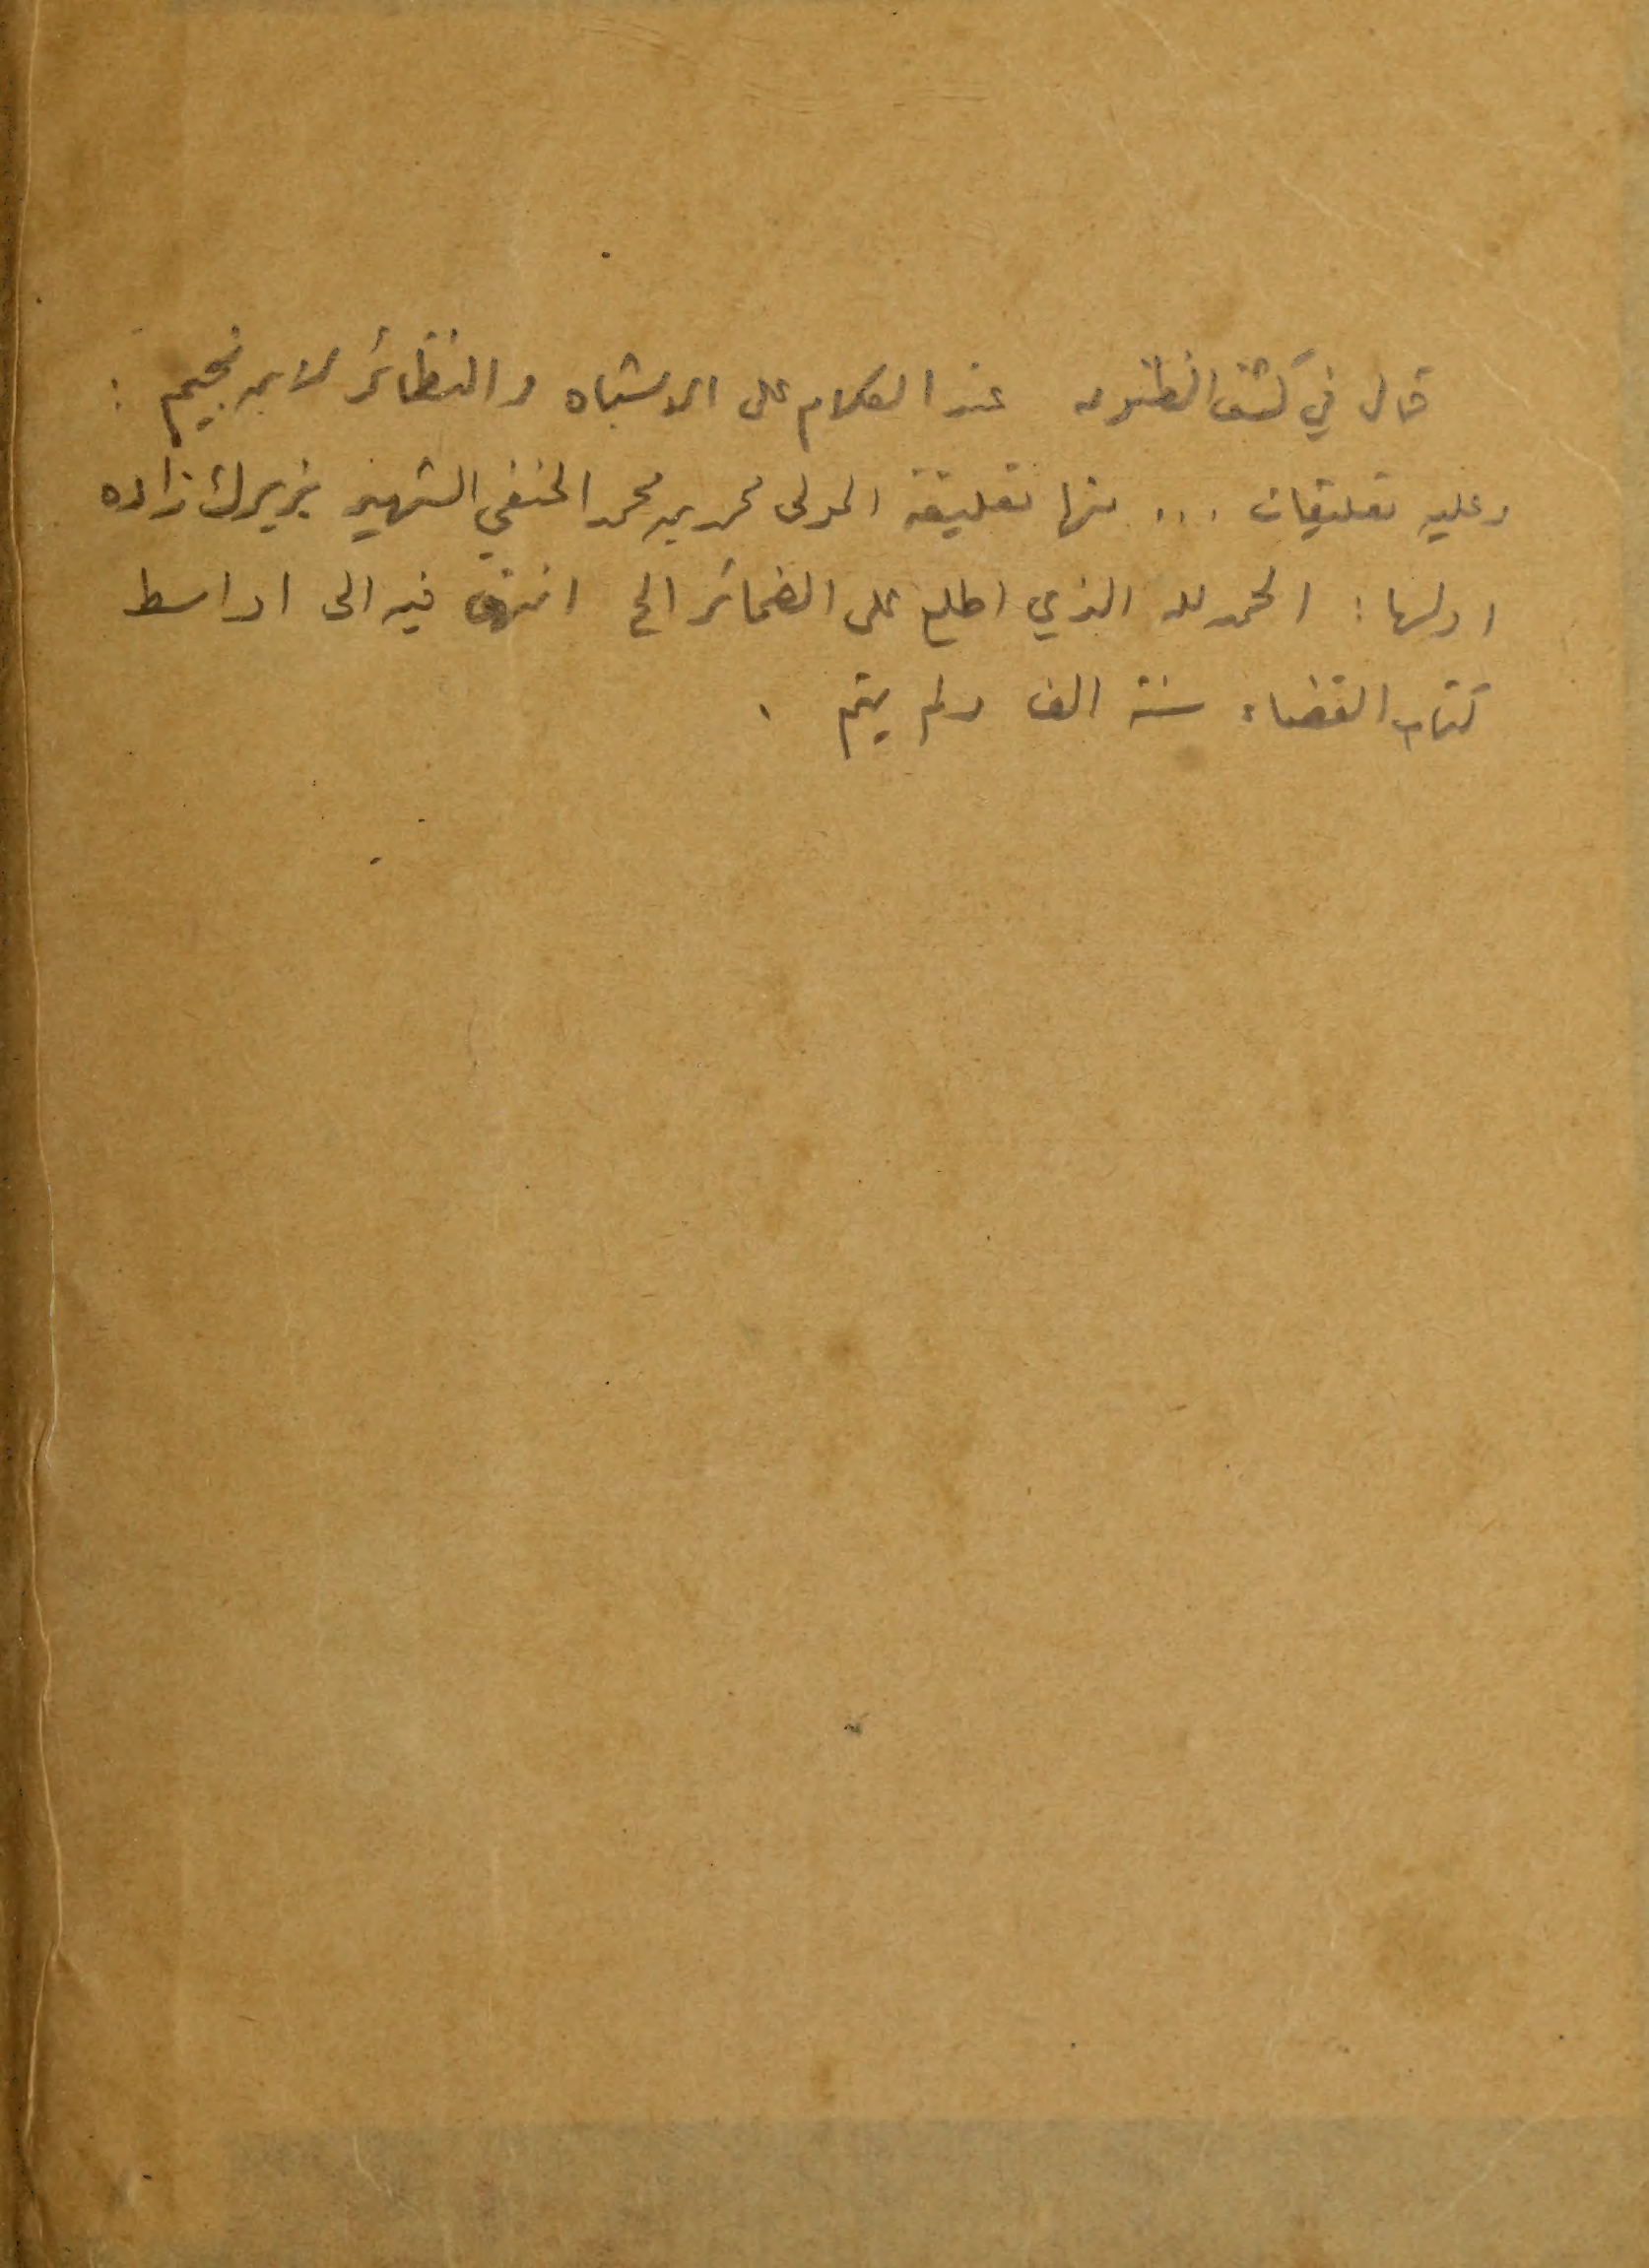 قال في كشف الظنون عند الكلام على الاشباه والنظائر لابن نجيم :
وعليه تعليقات ... منها تعليقة المولى محمد بن محمد الحنفي الشهير بزيرك زاده
اولها : الحمد لله الذي اطلع على الضمائر الخ انتهى فيه الى اواسط
كتاب القضاء سنة الف ولم يتم .